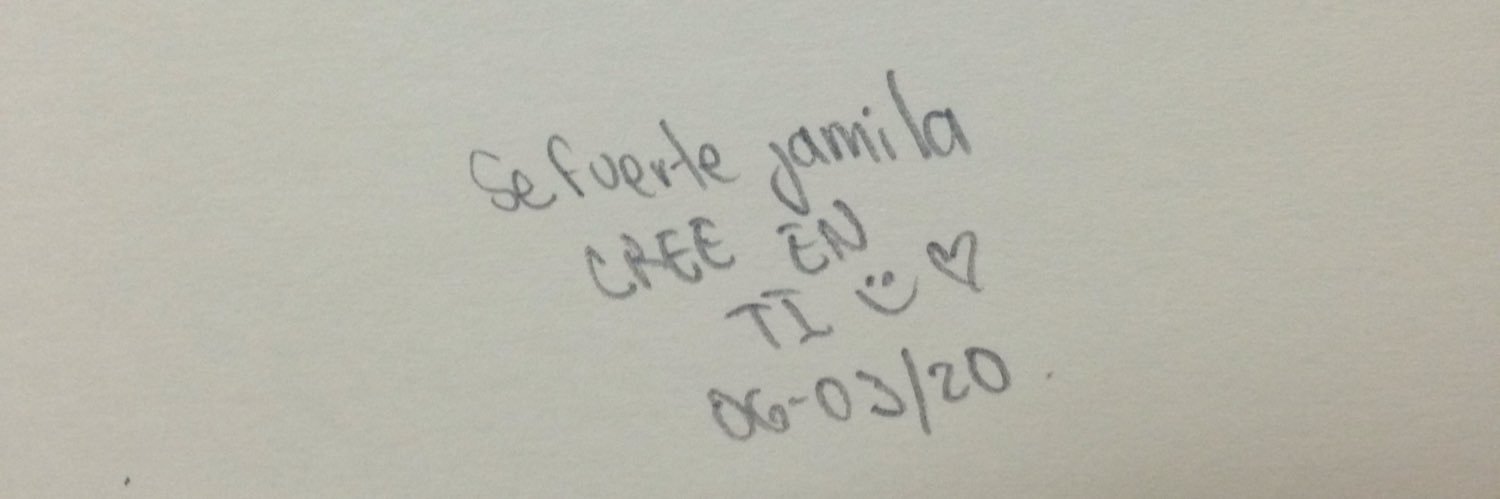 Se fuerte jamila
CREE EN
TI
06-03/20